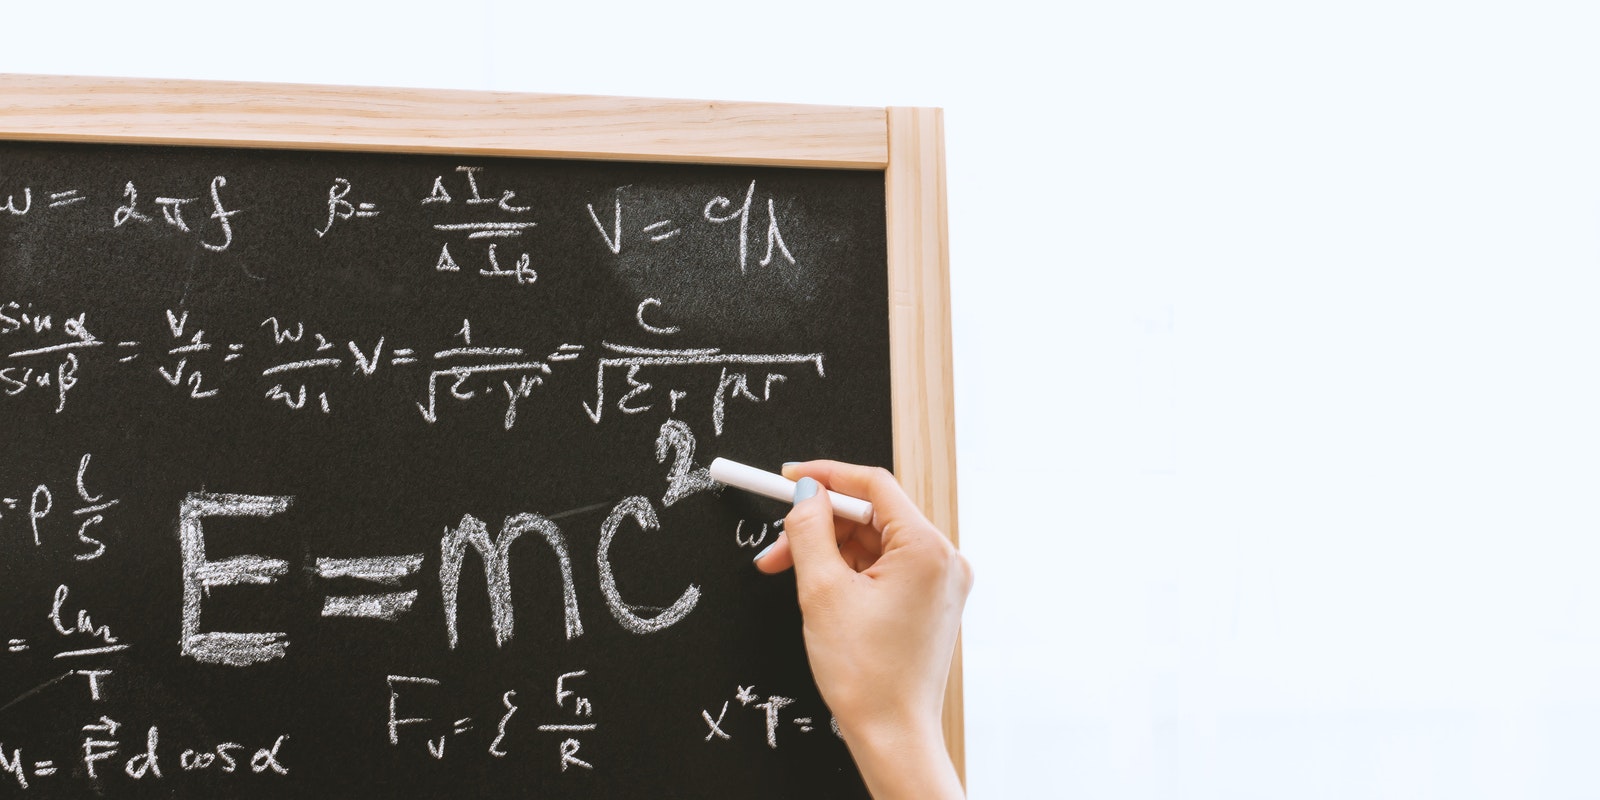 ω = 2πf   β = ΔI_C / ΔI_B   V = c/λ
sin α / sin β = v_1 / v_2 = w_2 / w_1   V = 1 / √(ε·μ) = C / √(ε_r μ_r)
= ρ l/S
E = mc²
ω
= ln_2 / T
F_v = ξ F_n / R   x*T =
M = F⃗ d cos α